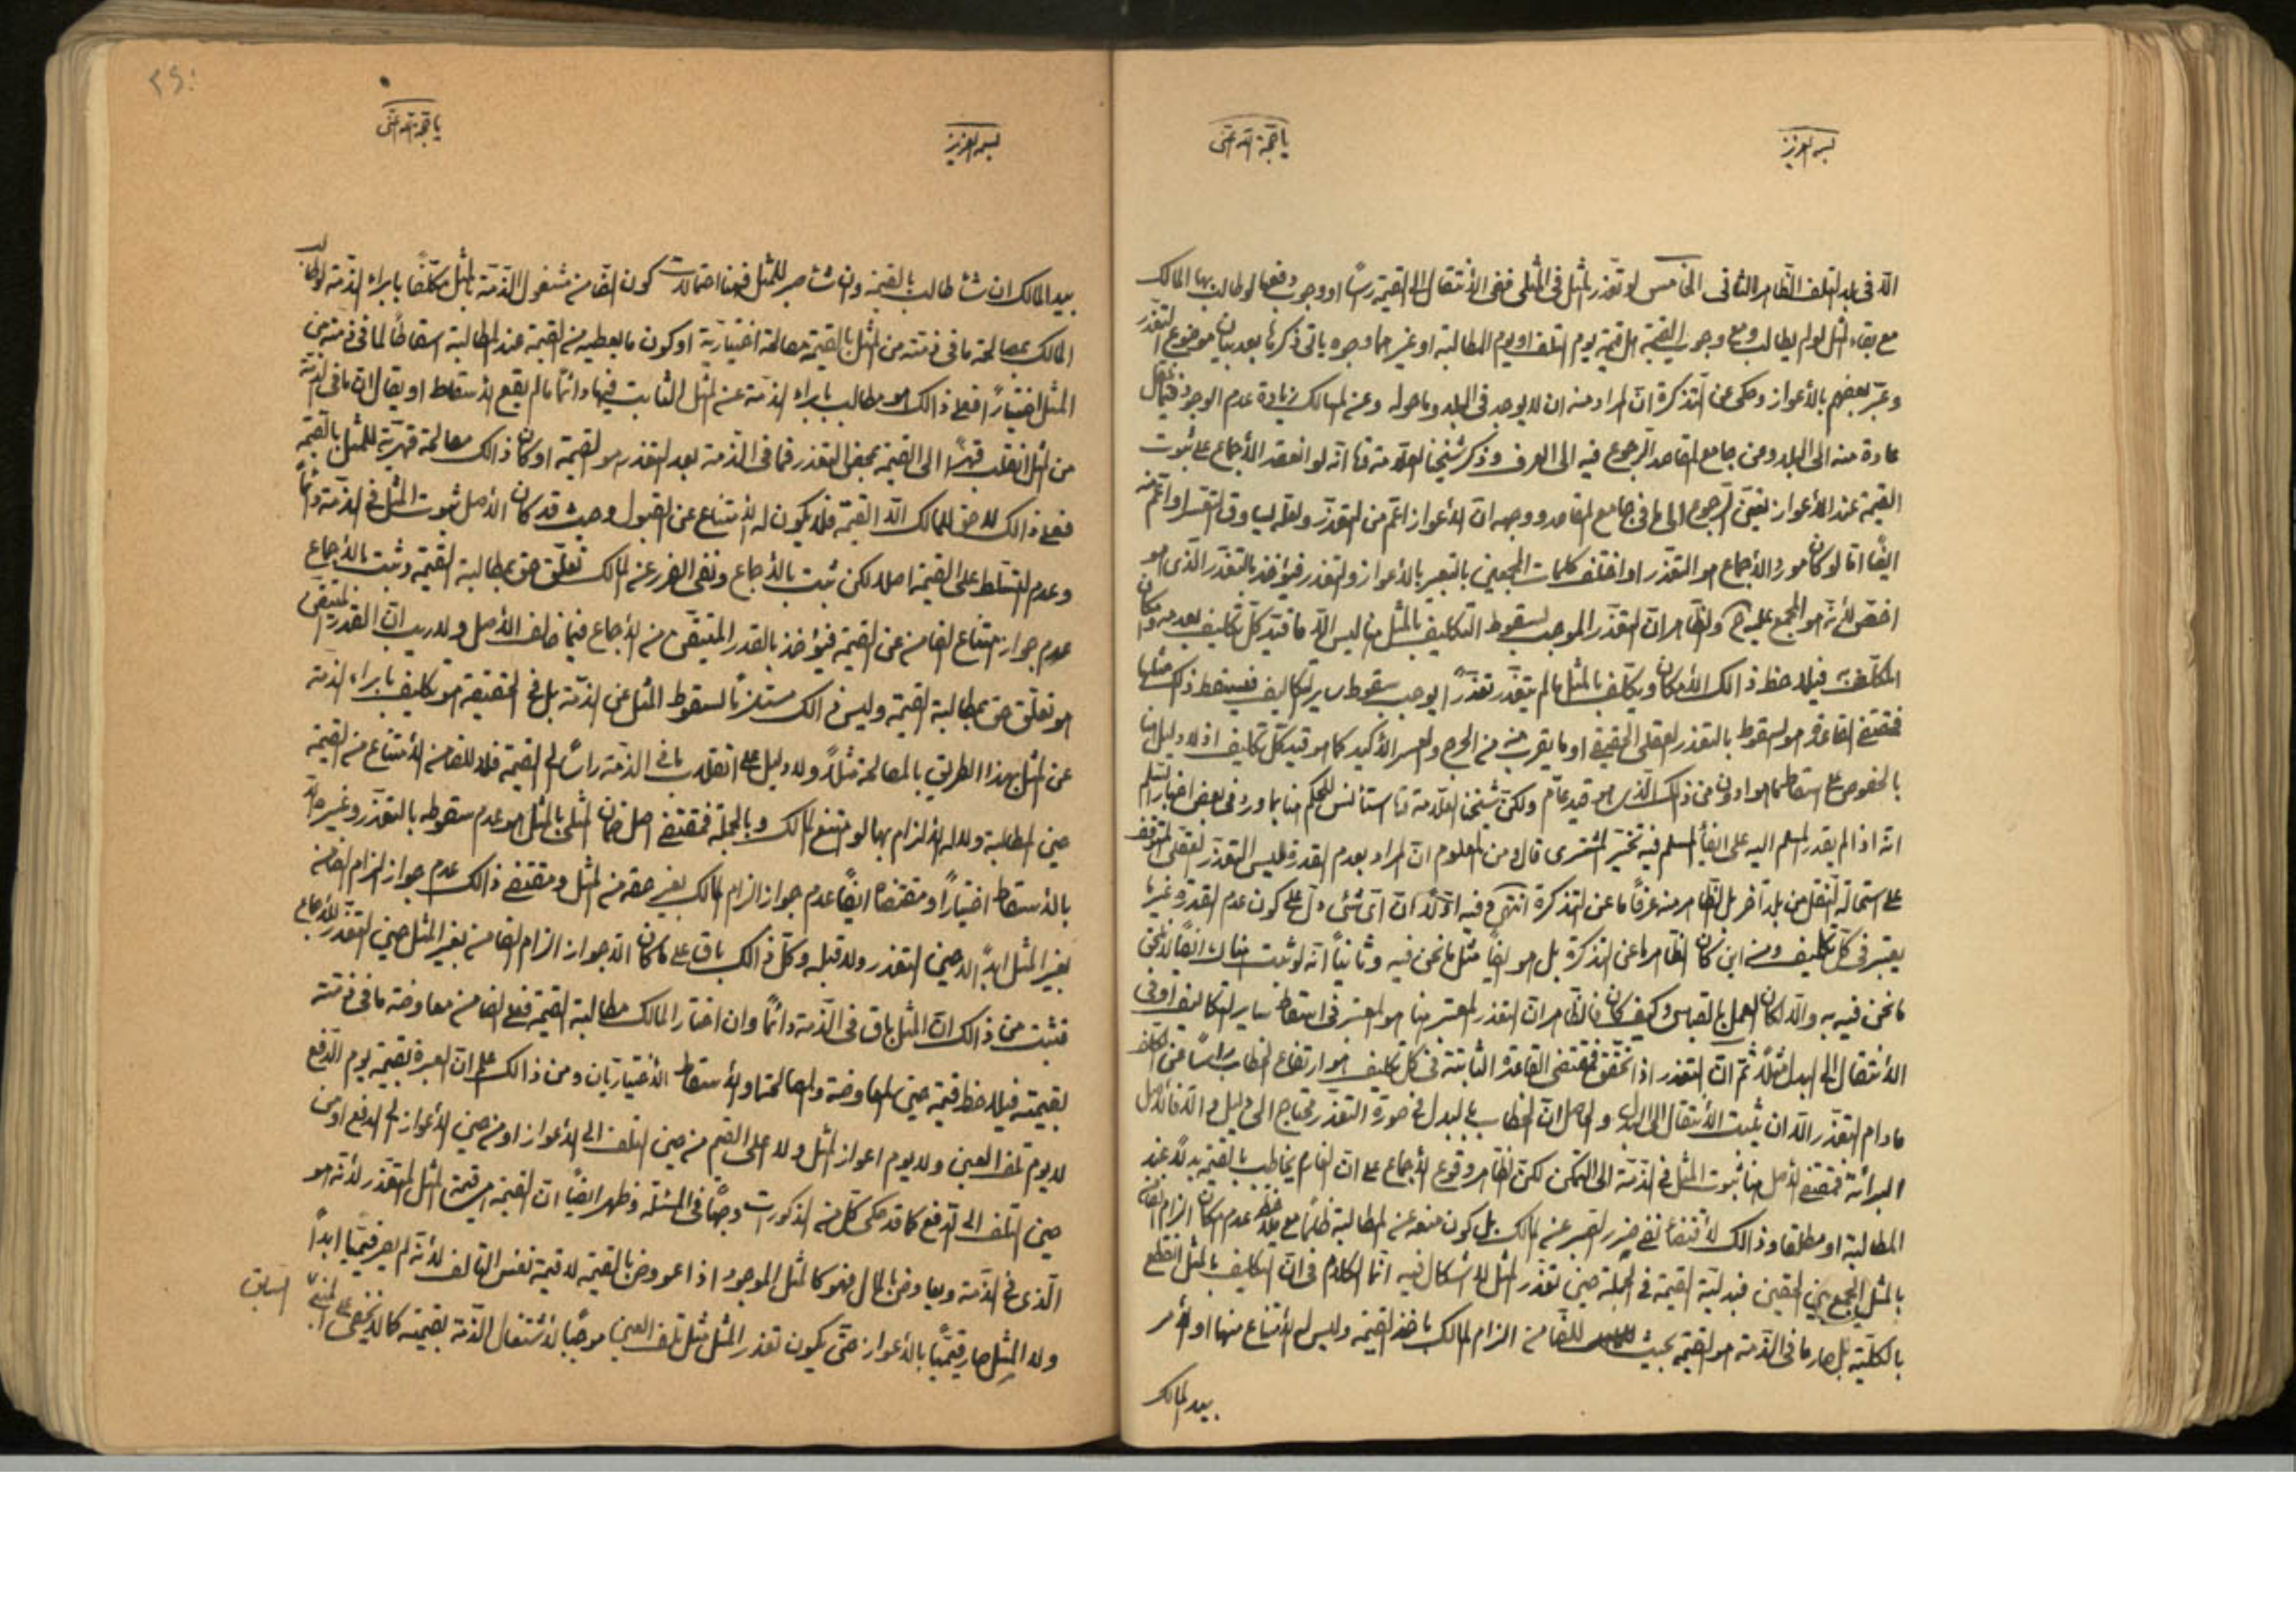 بسمه العزیز
یا حجة الله اغثنی
الّا فی بلد التلف الظاهر الثانی الخامس لو تعذر المثل فی المثلی ففی الانتقال الی القیمة رأسًا او وجوب دفعها لو طالب بها المالک
مع بقاء المثل لو لم یطالب ومع وجوب القیمة هل قیمة یوم التلف او یوم المطالبة او غیرهما وجوه یاتی ذکرها بعد بیان موضوع التعذر
وعبّر بعضهم بالأعواز وحکی عن التذکرة ان المراد منه ان لا یوجد فی البلد وما حوله وعن المسالک زیادة عدم الوجود فیما ینقل
عادة منه الی البلد ومن جامع المقاصد الرجوع فیه الی العرف وذکر شیخنا العلامة انه لو انعقد الأجماع علی ثبوت
القیمة عند الأعواز تعیّن الرجوع الی ما فی جامع المقاصد ووجهه ان الأعواز اعم من التعذر ولعله یساوق التعسر او اعم منه
ایضًا اما لو کان مورد الأجماع هو التعذر او اختلف کلمات المجمعین بالتعبیر بالأعواز والتعذر فیؤخذ بالتعذر الذی هو
اخص لأنه هو المجمع علیه والظاهر ان التعذر الموجب لسقوط التکلیف بالمثل هنا لیس الّا ما قید کل تکلیف بعدمه وامکان
المکلف به فیلاحظ ذالک الأمکان ویکلف بالمثل ما لم یتعذر تعذّرًا یوجب سقوط سایر التکالیف فیسقط ذلک مثلها
فمقتضی القاعدة هو السقوط بالتعذر العقلی الحقیقی او ما یقرب منه من الحرج والعسر الأکید کما هو قید کل تکلیف اذ لا دلیل هنا
بالخصوص علی اسقاطها هو ادون من ذلک الذی هو قید عام ولکن شیخنا العلامة استأنس للحکم هنا بما ورد فی بعض اخبار السلم
انه اذا لم یقدر المسلم الیه علی ایفاء المسلم فیه تخیّر المشتری قال ومن المعلوم ان المراد بعدم القدرة لیس التعذر العقلی المتوقف
علی استحالة النقل من بلد آخر بل الظاهر منه عرفًا ما عن التذکرة انتهی وفیه اوّلًا ان ای شئی دل علی کون عدم القدرة غیر ما
یعتبر فی کل تکلیف ومن این کان الظاهر ما عن التذکرة بل هو ایضًا مثل ما نحن فیه وثانیًا انه لو ثبت هناک
ما نحن فیه به والّا لکان العمل بالقیاس وکیف کان فالظاهر ان التعذر المعتبر هنا هو المعتبر فی اسقاط سایر التکالیف او فی
الأنتقال الی البدل مثلًا ثم ان التعذر اذا تحقق فمقتضی القاعدة الثابتة فی کل تکلیف هو ارتفاع الخطاب رأسًا عن المکلف
مادام التعذر الّا ان یثبت الأنتقال الی البدل والحاصل ان الخطاب بالبدل فی صورة التعذر محتاج الی دلیل والّا فالأصل
البرائة فمقتضی الأصل هنا ثبوت المثل فی الذمة الی التمکن لکن الظاهر وقوع الأجماع علی ان الغارم یخاطب بالقیمة بدلًا عند
المطالبة او مطلقا وذالک لاقتضاء نفی ضرر الصبر عن المالک بل کون منعه عن المطالبة ظلمًا مع ملاحظة عدم امکان الزام الضامن
بالمثل الجمع بین الحقین فبدلیة القیمة فی الجملة حین تعذر المثل لا اشکال فیه انما الکلام فی ان التکلیف بالمثل انقطع
بالکلیّة بل صار ما فی الذمة هو القیمة بحیث للضامن الزام المالک باخذ القیمة ولیس له الأمتناع منها او الأمر
بید المالک
٢٤٠
بسمه العزیز
یا حجة الله اغثنی
بید المالک ان شاء طالب بالقیمة وان شاء صبر للمثل فهنا احتمالات کون الضامن مشغول الذمة بالمثل مکلّفًا بابراء الذمة لو طالب
المالک بمصالحة ما فی ذمته من المثل بالقیمة مصالحة اختیاریة او کون ما یعطیه من القیمة عند المطالبة اسقاطًا لما فی ذمته من
المثل اختیارًا فعلی ذالک هو مطالب بابراء الذمة عن المثل الثابت فیها دائمًا ما لم یقع الأسقاط او یقال ان ما فی الذمة
من المثل انقلب قهرًا الی القیمة بمحض التعذر فما فی الذمة بعد التعذر هو القیمة او کان ذالک مصالحة قهریة للمثل بالقیمة
فعلی ذالک لا حق للمالک الّا القیمة فلا یکون له الأمتناع عن القبول وحیث قد کان الأصل ثبوت المثل فی الذمة دائمًا
وعدم التسلط علی القیمة اصلا لکن ثبت بالأجماع ونفی الضرر عن المالک تعلق حق بمطالبة القیمة وثبت بالأجماع
عدم جواز امتناع الضامن عن القیمة فیؤخذ بالقدر المتیقن من الأجماع فیما خالف الأصل ولا ریب ان القدر المتیقن
هو تعلق حق بمطالبة القیمة ولیس ذالک مستلزمًا لسقوط المثل عن الذمة بل فی الحقیقة هو تکلیف بابراء الذمة
عن المثل بهذا الطریق بالمصالحة مثلًا ولا دلیل علی انقلاب ما فی الذمة رأسًا الی القیمة فلا للضامن الأمتناع من القیمة
حین المطالبة ولا له الألزام بها لو امتنع المالک وبالجملة فمقتضی اصل ضمان المثلی بالمثل هو عدم سقوطه بالتعذر وغیره الّا
بالأسقاط اختیارًا ومقتضاه ایضًا عدم جواز الزام المالک بغیر حقه من المثل ومقتضی ذالک عدم جواز الزام الضامن
بغیر المثل ابدًا لا حین التعذر ولا قبله وکل ذالک باق علی ما کان الّا جواز الزام الضامن بغیر المثل حین التعذر للأجماع
فثبت من ذالک ان المثل باق فی الذمة دائمًا وان اختار المالک مطالبة القیمة فعلی الضامن معاوضة ما فی ذمته
بقیمته فیلاحظ قیمة حین المعاوضة والمصالحة والأسقاط الأختیاریان ومن ذالک علم ان العبرة بقیمة یوم الدفع
لا یوم تلف العین ولا یوم اعواز المثل ولا اعلی القیم من حین التلف الی الأعواز او من حین الأعواز الی الدفع او من
حین التلف الی الدفع کما قد حکی کل من المذکورات وجهًا فی المسئلة وظهر ایضًا ان القیمة هی قیمة المثل المتعذر لأنه هو
الذی فی الذمة ویعاوض بالمال فهو کالمثل الموجود اذا عووض بالقیمة لا قیمة نفس التالف لأنه لم یصر قیمیًا ابدًا
ولا المثل صار قیمیًّا بالأعواز حتی یکون تعذر المثل مثل تلف العین موجبًا لأشتغال الذمة بقیمته کما لا یخفی علی
السابق